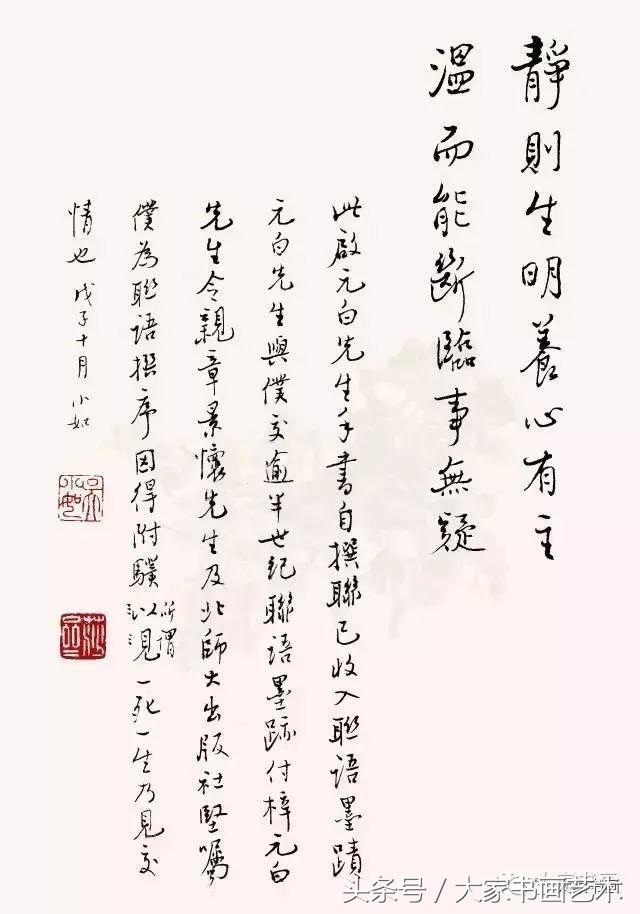 靜則生明養心有主
溫而能斷臨事無疑
此啟元白先生手書自撰聯已收入聯語墨蹟
元白先生與僕交逾半世紀聯語墨跡付梓元白
先生令親章景懷先生及北師大出版社堅囑
僕為聯語撰序因得附驥以見所謂一死一生乃見交
情也 戊子十月 小如
吳小如
头条号 / 大家书画艺术